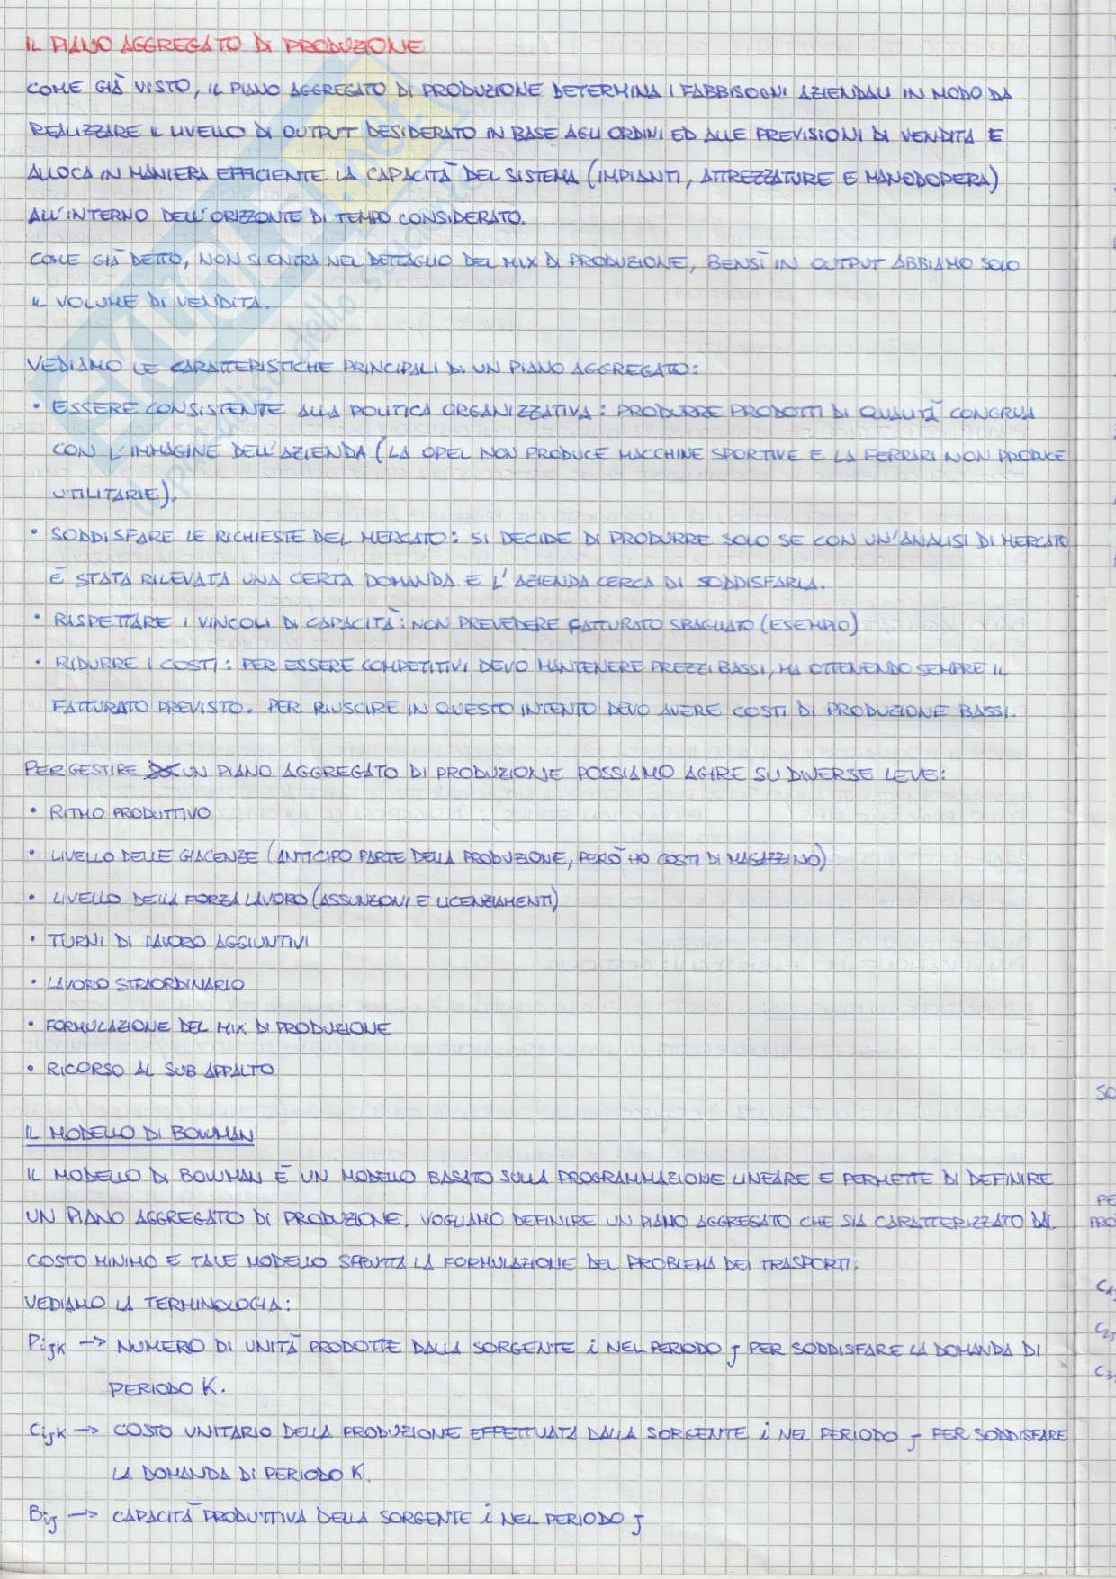 IL PIANO AGGREGATO DI PRODUZIONE
COME GIÀ VISTO, IL PIANO AGGREGATO DI PRODUZIONE DETERMINA I FABBISOGNI AZIENDALI IN MODO DA
REALIZZARE IL LIVELLO DI OUTPUT DESIDERATO IN BASE AGLI ORDINI ED ALLE PREVISIONI DI VENDITA E
ALLOCA IN MANIERA EFFICIENTE LA CAPACITÀ DEL SISTEMA (IMPIANTI, ATTREZZATURE E MANODOPERA)
ALL'INTERNO DELL'ORIZZONTE DI TEMPO CONSIDERATO.
COME GIÀ DETTO, NON SI ENTRA NEL DETTAGLIO DEL MIX DI PRODUZIONE, BENSÌ IN OUTPUT ABBIAMO SOLO
IL VOLUME DI VENDITA.
VEDIAMO LE CARATTERISTICHE PRINCIPALI DI UN PIANO AGGREGATO:
• ESSERE CONSISTENTE ALLA POLITICA ORGANIZZATIVA: PRODURRE PRODOTTI DI QUALITÀ CONGRUA
CON L'IMMAGINE DELL'AZIENDA (LA OPEL NON PRODUCE MACCHINE SPORTIVE E LA FERRARI NON PRODUCE
UTILITARIE).
• SODDISFARE LE RICHIESTE DEL MERCATO: SI DECIDE DI PRODURRE SOLO SE CON UN'ANALISI DI MERCATO
È STATA RILEVATA UNA CERTA DOMANDA E L'AZIENDA CERCA DI SODDISFARLA.
• RISPETTARE I VINCOLI DI CAPACITÀ: NON PREVEDERE FATTURATO SBAGLIATO (ESEMPIO)
• RIDURRE I COSTI: PER ESSERE COMPETITIVI DEVO MANTENERE PREZZI BASSI, MA OTTENENDO SEMPRE IL
FATTURATO PREVISTO. PER RIUSCIRE IN QUESTO INTENTO DEVO AVERE COSTI DI PRODUZIONE BASSI.
PER GESTIRE UN PIANO AGGREGATO DI PRODUZIONE POSSIAMO AGIRE SU DIVERSE LEVE:
• RITMO PRODUTTIVO
• LIVELLO DELLE GIACENZE (ANTICIPO PARTE DELLA PRODUZIONE, PERÒ HO COSTI DI MAGAZZINO)
• LIVELLO DELLA FORZA LAVORO (ASSUNZIONI E LICENZIAMENTI)
• TURNI DI LAVORO AGGIUNTIVI
• LAVORO STRAORDINARIO
• FORMULAZIONE DEL MIX DI PRODUZIONE
• RICORSO AL SUB APPALTO
IL MODELLO DI BOWMAN
IL MODELLO DI BOWMAN È UN MODELLO BASATO SULLA PROGRAMMAZIONE LINEARE E PERMETTE DI DEFINIRE
UN PIANO AGGREGATO DI PRODUZIONE. VOGLIAMO DEFINIRE UN PIANO AGGREGATO CHE SIA CARATTERIZZATO DAL
COSTO MINIMO E TALE MODELLO SFRUTTA LA FORMULAZIONE DEL PROBLEMA DEI TRASPORTI.
VEDIAMO LA TERMINOLOGIA:
Pijk → NUMERO DI UNITÀ PRODOTTE DALLA SORGENTE i NEL PERIODO j PER SODDISFARE LA DOMANDA DI
PERIODO K.
Cijk → COSTO UNITARIO DELLA PRODUZIONE EFFETTUATA DALLA SORGENTE i NEL PERIODO j PER SODDISFARE
LA DOMANDA DI PERIODO K.
Bij → CAPACITÀ PRODUTTIVA DELLA SORGENTE i NEL PERIODO j